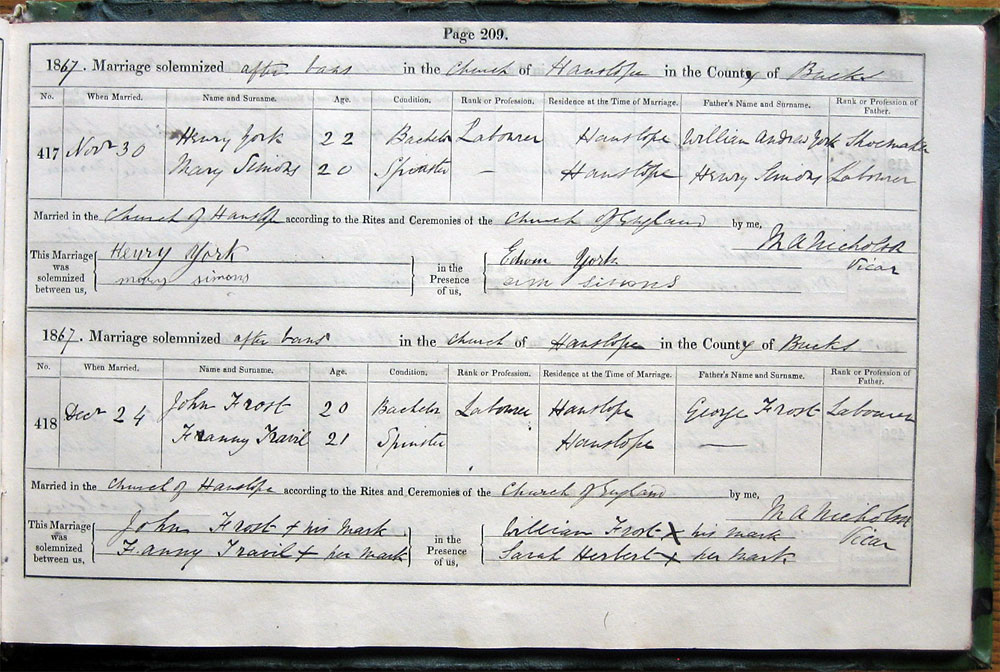 Page 209.
1867. Marriage solemnized after bans in the Church of Hanslope in the County of Bucks
No. When Married. Name and Surname. Age. Condition. Rank or Profession. Residence at the Time of Marriage. Father's Name and Surname. Rank or Profession of Father.
417 Novr 30 Henry York 22 Bachelor Labourer Hanslope William Andrew York Shoemaker
Mary Simons 20 Spinster — Hanslope Henry Simons Labourer
Married in the Church of Hanslope according to the Rites and Ceremonies of the Church of England by me,
M A Nicholson
Vicar
This Marriage was solemnized between us, Henry York in the Presence of us, Edwin York
mary simons simons
1867. Marriage solemnized after bans in the Church of Hanslope in the County of Bucks
No. When Married. Name and Surname. Age. Condition. Rank or Profession. Residence at the Time of Marriage. Father's Name and Surname. Rank or Profession of Father.
418 Decr 24 John Frost 20 Bachelor Labourer Hanslope George Frost Labourer
Franny Travil 21 Spinster Hanslope —
Married in the Church of Hanslope according to the Rites and Ceremonies of the Church of England by me,
M A Nicholson
Vicar
This Marriage was solemnized between us, John Frost + his mark in the Presence of us, William Frost X his mark
Fanny Travil + her mark Sarah Herbert + her mark